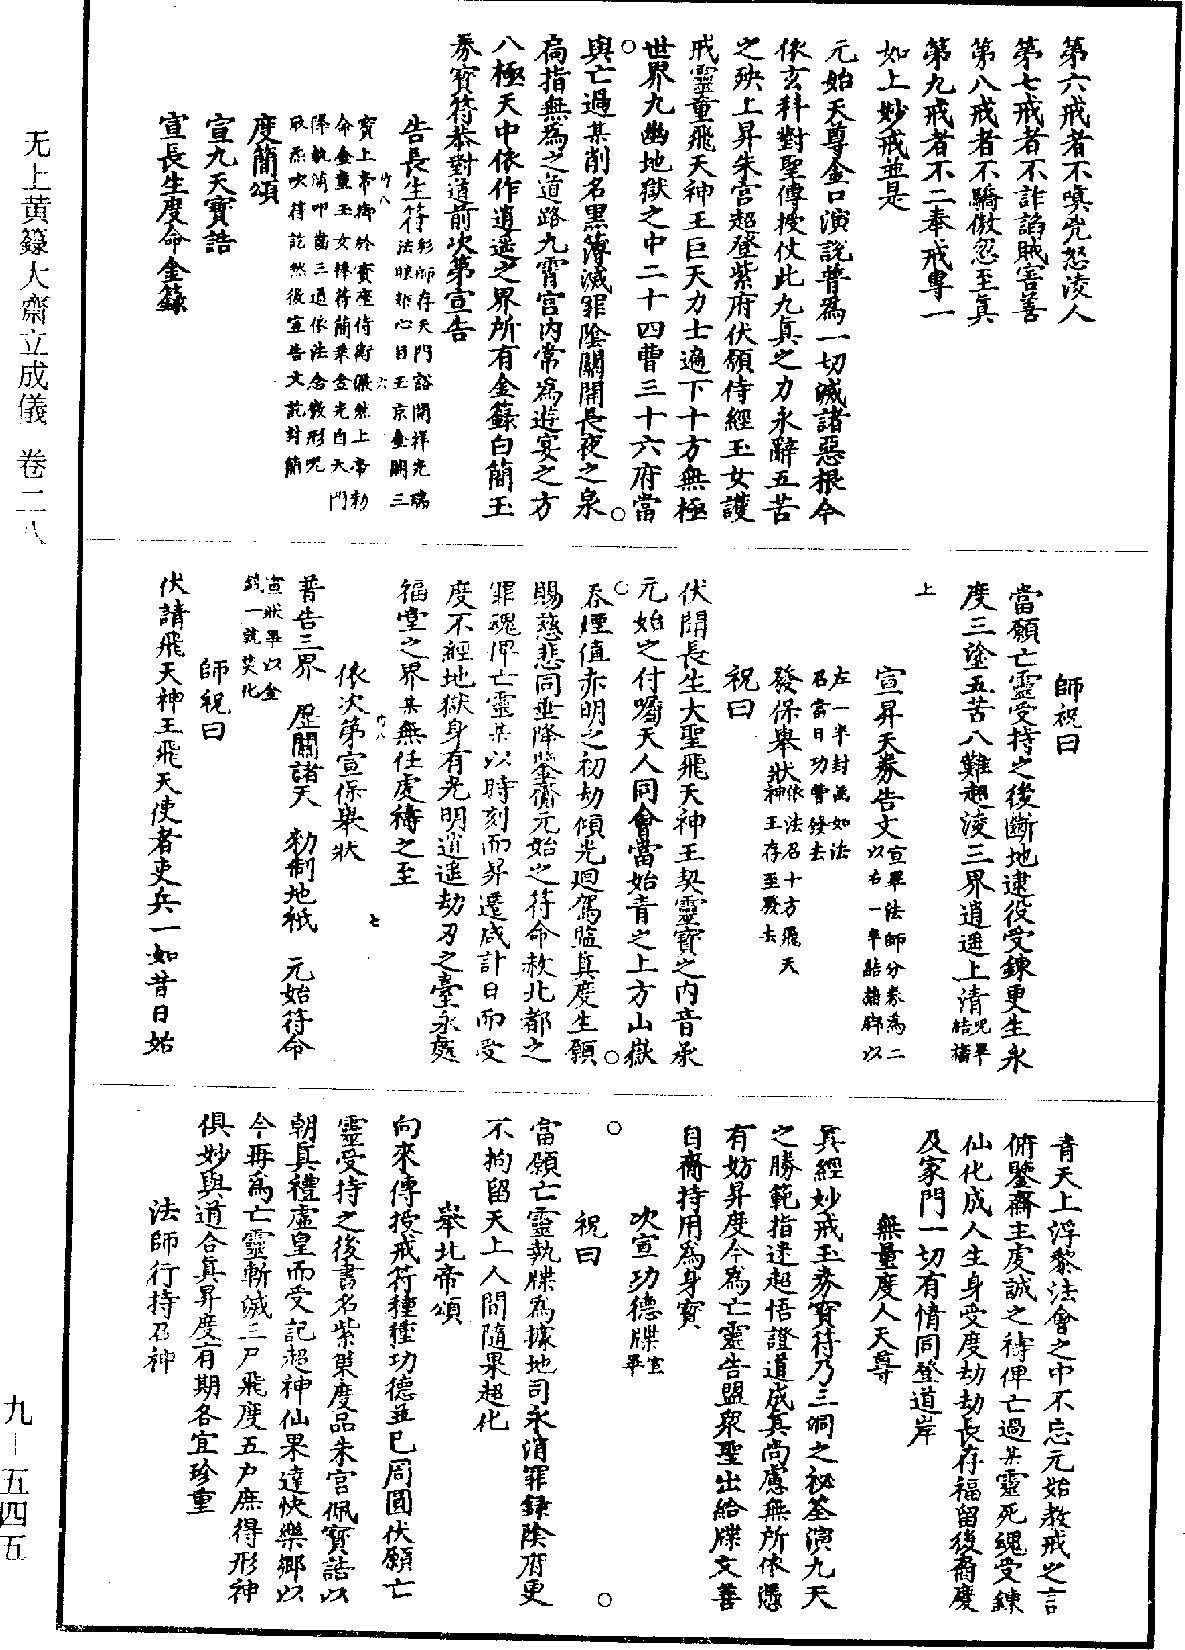 第六戒者不嗔兇怒淩人
第七戒者不詐諂賊害善
第八戒者不驕傲忽至真
第九戒者不二奉戒專一
如上妙戒並是
元始天尊金口演說普為一切滅諸惡根今
依玄科對聖傳授仗此九真之力永辭五苦
之殃上昇朱宮超登紫府伏願侍經玉女護
戒靈童飛天神王巨天力士遍下十方無極
世界九幽地獄之中二十四曹三十六府當
與亡過某削名黑簿滅罪陰關開長夜之泉
扃指無為之道路九霄宮內常為遊宴之方
八極天中依作逍遙之界所有金籙白簡玉
券寶符恭對道前次第宣告
告長生符法師存天門豁開祥光瑞
三
寶上帝御於寶座侍衛儼然上帝勑
命金童玉女捧符簡乘金光自天門
降執簡叩齒三通依法念救形咒
取炁吹符訖然後宣告文訖封簡
度簡頌
宣九天寶誥
宣長生度命金籙
師祝曰
當願亡靈受持之後斷地逮役受鍊更生永
度三塗五苦八難超淩三界逍遙上清咒畢
上
宣昇天券告文宣畢法師分券為二
以右一半給
以
左一半封函如法
召當日功曹發去
發保舉狀依法召十方飛天
神王存至發去
祝曰
伏聞長生大聖飛天神王契靈寶之內音承
元始之付囑天人同會當始青之上方山嶽
吞煙值赤明之初劫傾光迴駕監真度生願
賜慈悲同垂降鑒齎元始之符命赦北都之
罪魂俾亡靈某以時刻而昇遷咸計日而受
度不經地獄身有光明逍遙劫刃之臺永處
福堂之界某無任虔禱之至
依次第宣保舉狀
七
普告三界 歷關諸天 勑制地祇 元始符命
宣狀畢以金
錢一就焚化
師祝曰
伏請飛天神王飛天使者吏兵一如昔日始
青天上浮黎法會之中不忘元始教戒之言
俯鑒齋主虔誠之禱俾亡過某靈死魂受鍊
仙化成人生身受度劫劫長存福留後裔慶
及家門一切有情同登道岸
無量度人天尊
真經妙戒玉券寶符乃三洞之祕筌演九天
之勝範指迷超悟證道成真尚慮無所依憑
有妨昇度今為亡靈告盟眾聖出給牒文善
自齋持用為身寶
次宣功德牒宣畢
祝曰
當願亡靈執牒為據地司永消罪錄陰府更
不拘留天上人間隨果超化
舉北帝頌
向來傳授戒符種種功德並已周圓伏願亡
靈受持之後書名紫策度品朱宮佩寶誥以
朝真禮虛皇而受記超神仙果達快樂鄉以
今再為亡靈斬滅三尸飛度五戶庶得形神
俱妙與道合真昇度有期各宜珍重
法師行持召神
无上黄籙大齋立成儀 卷二八
九—五四五